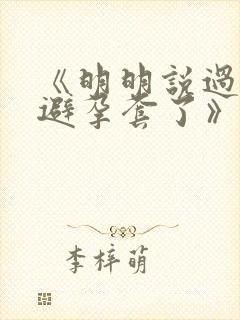 《明明説過
避孕套了》
李梓萌